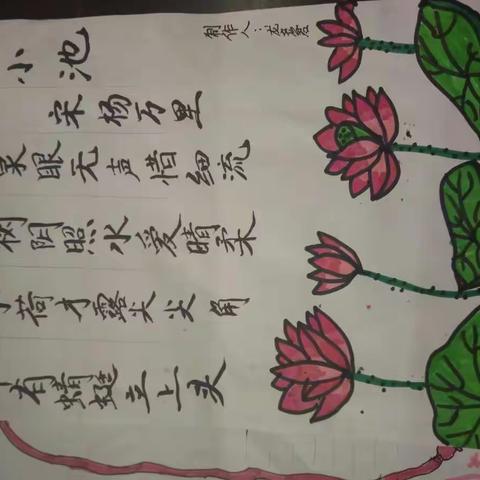 小池
制作人：
宋 杨万里
泉眼无声惜细流
树阴照水爱晴柔
荷才露尖尖角
有蜻蜓立上头